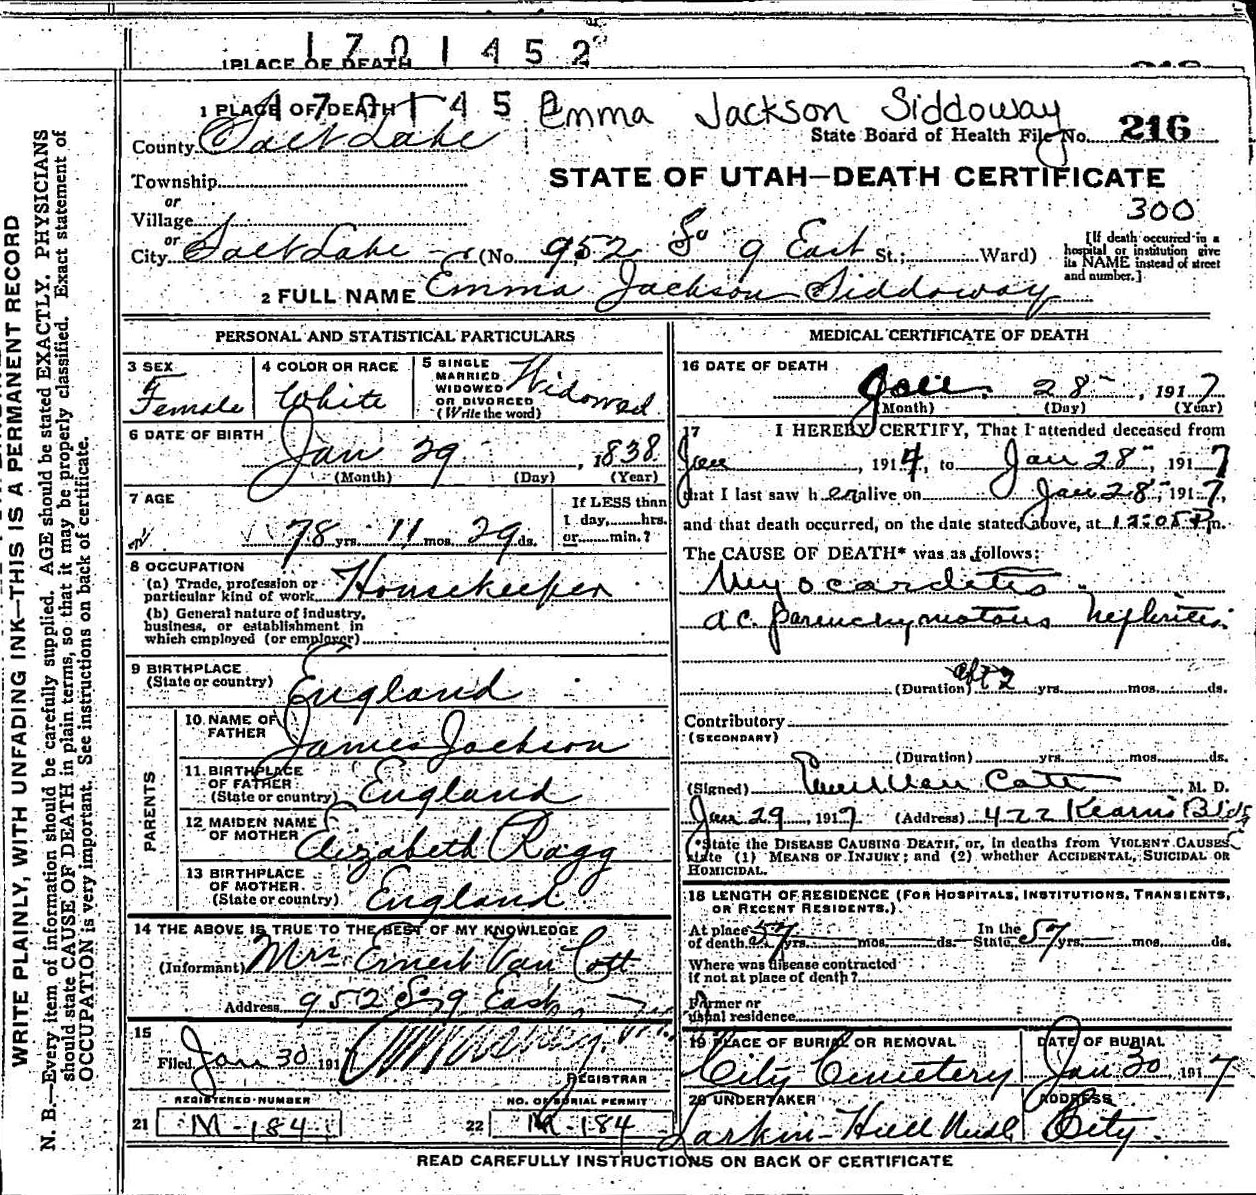 1701452
1 PLACE OF DEATH
WRITE PLAINLY, WITH UNFADING INK—THIS IS A PERMANENT RECORD
N. B.—Every item of information should be carefully supplied. AGE should be stated EXACTLY. PHYSICIANS
should state CAUSE OF DEATH in plain terms, so that it may be properly classified. Exact statement of
OCCUPATION is very important. See instructions on back of certificate.
1 PLACE OF DEATH 170145 Emma Jackson Siddoway
County Salt Lake State Board of Health File No. 216
Township
STATE OF UTAH—DEATH CERTIFICATE
or
Village
300
or
City Salt Lake (No. 952 So 9 East St.; Ward)
[If death occurred in a
hospital or institution give
its NAME instead of street
and number.]
2 FULL NAME Emma Jackson Siddoway
PERSONAL AND STATISTICAL PARTICULARS
3 SEX
Female
4 COLOR OR RACE
White
5 SINGLE
MARRIED
WIDOWED
OR DIVORCED
(Write the word)
Widowed
6 DATE OF BIRTH
Jan 29, 1838
(Month) (Day) (Year)
7 AGE
78 yrs. 11 mos. 29 ds.
If LESS than
1 day, hrs.
or min.?
8 OCCUPATION
(a) Trade, profession or
particular kind of work Housekeeper
(b) General nature of industry,
business, or establishment in
which employed (or employer)
9 BIRTHPLACE
(State or country) England
PARENTS
10 NAME OF
FATHER James Jackson
11 BIRTHPLACE
OF FATHER
(State or country) England
12 MAIDEN NAME
OF MOTHER Elizabeth Ragg
13 BIRTHPLACE
OF MOTHER
(State or country) England
14 THE ABOVE IS TRUE TO THE BEST OF MY KNOWLEDGE
(Informant) Mrs Ernest Van Cott
Address 952 S. 9 East
15
Filed Jan 30 191
REGISTRAR
REGISTERED NUMBER
21 M-184
NO. OF BURIAL PERMIT
22 M-184
MEDICAL CERTIFICATE OF DEATH
16 DATE OF DEATH
Jan. 28, 1917
(Month) (Day) (Year)
17 I HEREBY CERTIFY, That I attended deceased from
Jan, 1914, to Jan 28, 1917
that I last saw her alive on Jan 28, 1917,
and that death occurred, on the date stated above, at 12:05 P m.
The CAUSE OF DEATH* was as follows:
Myocarditis
ac. parenchymatous Nephritis
(Duration) 2 yrs. mos. ds.
Contributory
(SECONDARY)
(Duration) yrs. mos. ds.
(Signed) Van Cott M. D.
Jan 29, 1917 (Address) 422 Kearns Bldg
*State the DISEASE CAUSING DEATH, or, in deaths from VIOLENT CAUSES
state (1) MEANS OF INJURY; and (2) whether ACCIDENTAL, SUICIDAL OR
HOMICIDAL.
18 LENGTH OF RESIDENCE (FOR HOSPITALS, INSTITUTIONS, TRANSIENTS,
OR RECENT RESIDENTS.)
At place
of death 57 yrs. mos. ds.
In the
State 57 yrs. mos. ds.
Where was disease contracted
if not at place of death?
Former or
usual residence
19 PLACE OF BURIAL OR REMOVAL
City Cemetery
DATE OF BURIAL
Jan 30, 1917
20 UNDERTAKER
Larkin-Hull
ADDRESS
City.
READ CAREFULLY INSTRUCTIONS ON BACK OF CERTIFICATE